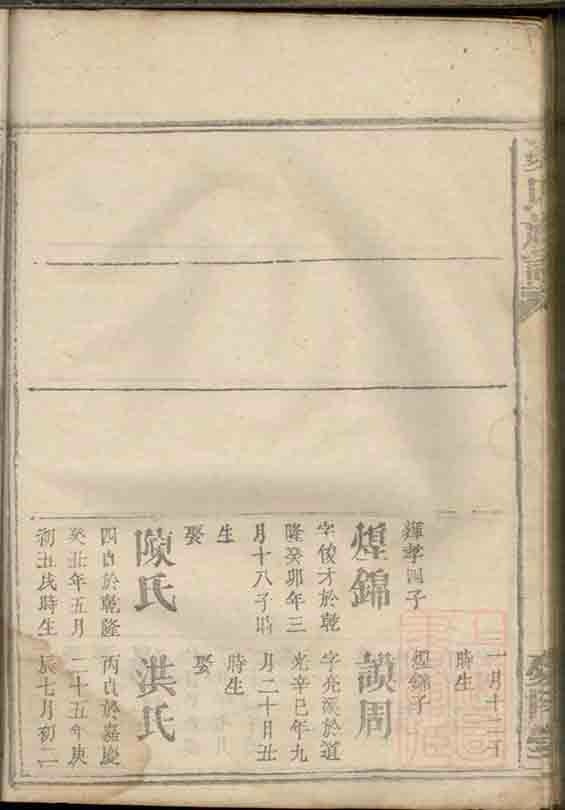 氏族譜
輝孝四子
煌錦
字俊才於乾
隆癸卯年三
月十八子時
生
娶
陳氏
四貞於乾隆
癸丑年五月
初五戌時生
一月十二丁
時生
煌錦子
謨周
字亮溪於道
光辛巳年九
月二十日丑
時生
娶
洪氏
丙貞於嘉慶
二十五年庚
辰七月初二